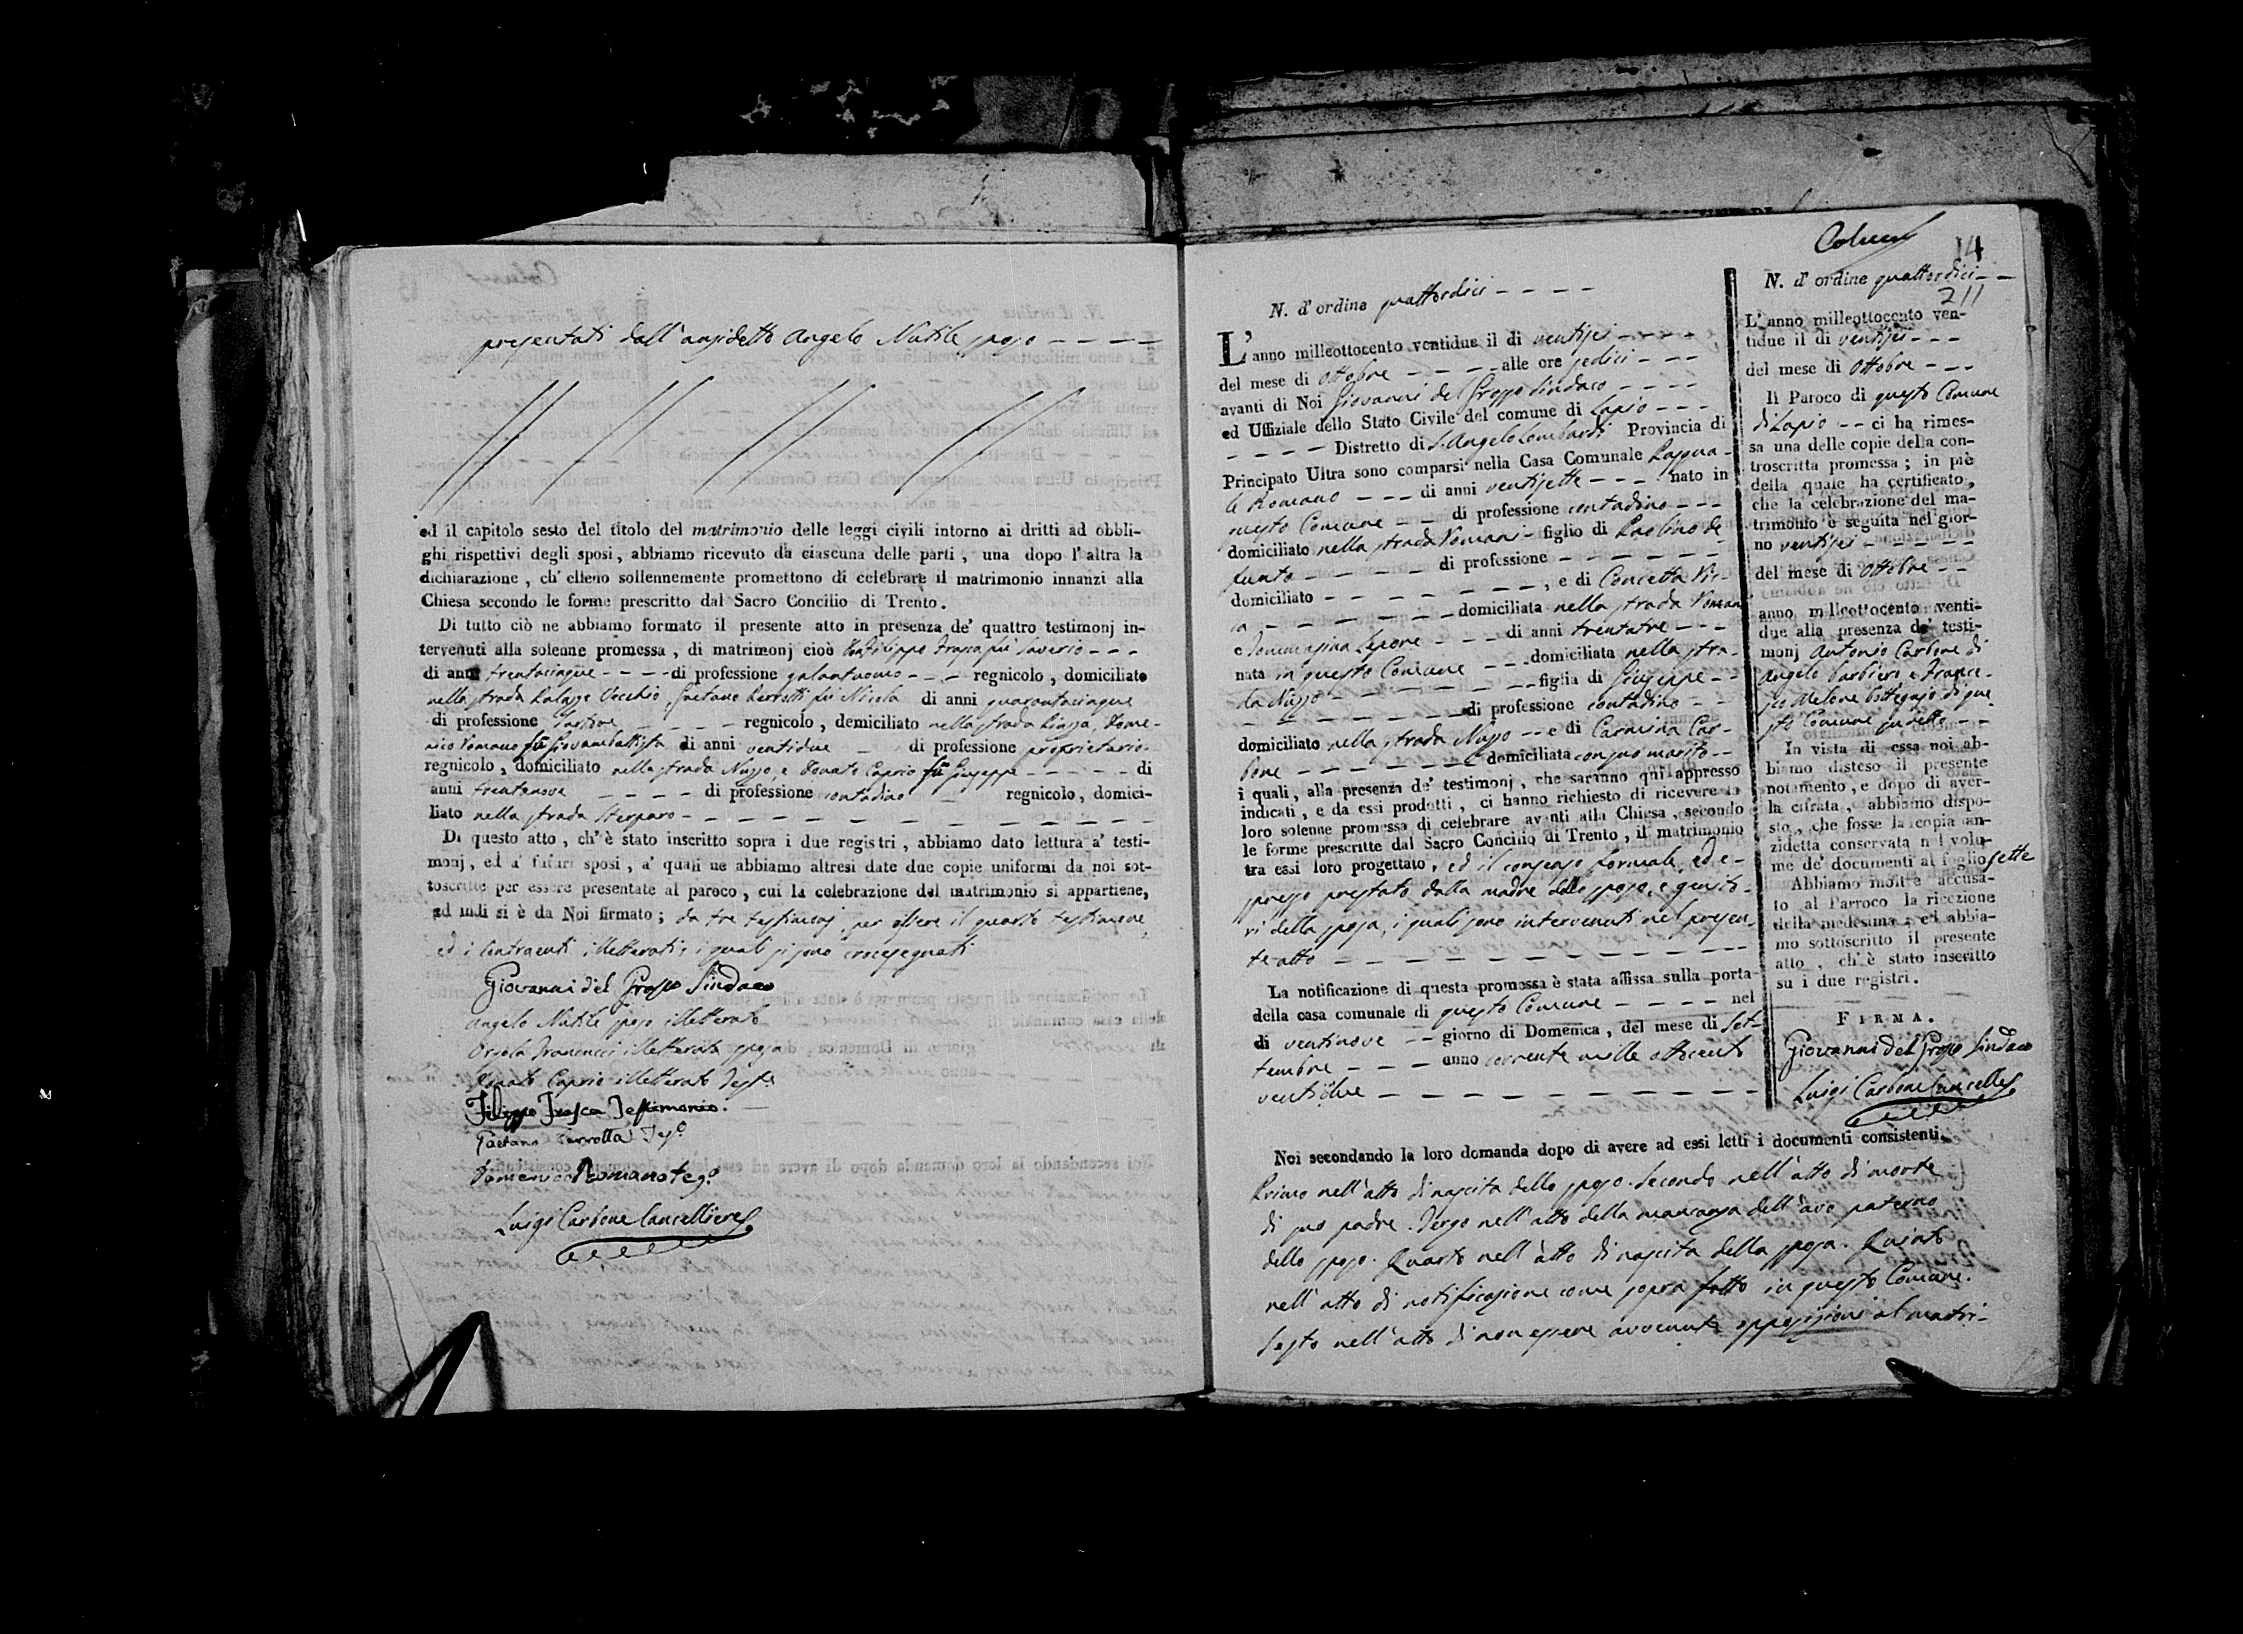 presentati dall'anzidetto Angelo Nutile sposo - - - -
ed il capitolo sesto del titolo del matrimonio delle leggi civili intorno ai dritti ad obbli-
ghi rispettivi degli sposi, abbiamo ricevuto da ciascuna delle parti, una dopo l'altra la
dichiarazione, ch'elleno sollennemente promettono di celebrare il matrimonio innanzi alla
Chiesa secondo le forme prescritto dal Sacro Concilio di Trento.
Di tutto ciò ne abbiamo formato il presente atto in presenza de' quattro testimonj in-
tervenuti alla solenne promessa, di matrimonj cioè Filippo Frasca fu Saverio - - -
di anni trentacinque - - - - di professione galantuomo - - - regnicolo, domiciliato
nella strada Palazzo Vecchio, Gaetano fu Nicola di anni quarantacinque
di professione Sartore - - - - regnicolo, domiciliato nella strada Piazza, Dome-
nico Romano fu Giovambattista di anni ventidue - di professione proprietario
regnicolo, domiciliato nella strada Nuzzo, e Donato Caprio fu Giuseppe - - - - - di
anni trentanove - - - - di professione contadino - regnicolo, domici-
liato nella strada Sterparo - - - - - - - - - - -
Di questo atto, ch'è stato inscritto sopra i due registri, abbiamo dato lettura a' testi-
monj, ed a' futuri sposi, a' quali ne abbiamo altresì date due copie uniformi da noi sot-
toscritte per essere presentate al paroco, cui la celebrazione del matrimonio si appartiene,
ed indi si è da Noi firmato; da tre testimonj, per essere il quarto testimone,
ed i Contraenti illetterati, i quali si sono crocesegnati
Giovanni del Grosso Sindaco
Angelo Nutile sposo illetterato
Orsola Iranucci illetterata sposa
Donato Caprio illetterato Test.e
Filippo Frasca Testimonio.
Gaetano Tes.o
Domenico Romano teso.
Luigi Carbone Cancelliere
14
N. d'ordine quattordici - - - -
L'anno milleottocento ventidue il dì ventisei - - - -
del mese di Ottobre - - - - alle ore sedici - - -
avanti di Noi Giovanni del Grosso Sindaco - - - -
ed Uffiziale dello Stato Civile del comune di Lapio - - -
- - - - Distretto di S. Angelo Lombardi Provincia di
Principato Ultra sono comparsi nella Casa Comunale Pasqua-
le Romano - - - di anni ventisette - - - nato in
questo Comune - - di professione contadino - - -
domiciliato nella strada Romani - figlio di Paolino de
funto - - - - - di professione - - - - - -
domiciliato - - - - - - - - , e di Concetta
- - - - - - - domiciliata nella strada Romani
e Tommasina Lepore - - - di anni trentatre - - -
nata in questo Comune - - - domiciliata nella stra-
da Nuzzo - - - - - - - figlia di Giuseppe - -
- - - - - - - - di professione contadino - -
domiciliato nella strada Nuzzo - - e di Carmina Car-
bone - - - - - - - domiciliata con suo marito - -
i quali, alla presenza de' testimonj, che saranno qui appresso
indicati, e da essi prodotti, ci hanno richiesto di ricevere la
loro solenne promessa di celebrare avanti alla Chiesa, secondo
le forme prescritte dal Sacro Concilio di Trento, il matrimonio
tra essi loro progettato, ed il consenso formale, ed e-
spresso prestato dalla madre dello sposo, e genito-
ri della sposa, i quali sono intervenuti nel presen-
te atto - - - - - - - - - - - -
La notificazione di questa promessa è stata affissa sulla porta
della casa comunale di questo Comune - - - - nel
dì ventinove - - giorno di Domenica, del mese di Set-
tembre - - - - anno corrente mille ottocento
ventidue - - - - - - - - - -
N. d'ordine quattordici - -
211
L'anno milleottocento ven-
tidue il dì ventisei - - -
del mese di Ottobre - - -
Il Paroco di questo Comune
di Lapio - - ci ha rimes-
sa una delle copie della con-
troscritta promessa; in piè
della quale ha certificato,
che la celebrazione del ma-
trimonio è seguita nel gior-
no ventisei - - - - -
del mese di Ottobre - -
anno milleottocento venti-
due alla presenza de' testi-
monj Antonio Carbone di
Angelo barbiere e France-
sco Melone bottegajo di que-
sto Comune sudetto - -
In vista di essa noi ab-
biamo disteso il presente
notamento, e dopo di aver-
la cifrata, abbiamo dispo-
sto, che fosse la copia an-
zidetta conservata nel volu-
me de' documenti al foglio sette
Abbiamo inoltre accusa-
to al Parroco la ricezione
della medesima; ed abbia-
mo sottoscritto il presente
atto, ch'è stato inscritto
su i due registri.
FIRMA.
Giovanni del Grosso Sindaco
Luigi Carbone Cancelliere
Noi secondando la loro domanda dopo di avere ad essi letti i documenti consistenti.
Primo nell'atto di nascita dello sposo. Secondo nell'atto di morte
di suo padre. Terzo nell'atto della mancanza dell'avo paterno
dello sposo. Quarto nell'atto di nascita della sposa. Quinto
nell'atto di notificazione come sopra fatto in questo Comune.
Sesto nell'atto di non essere avvenuta opposizione al matri-